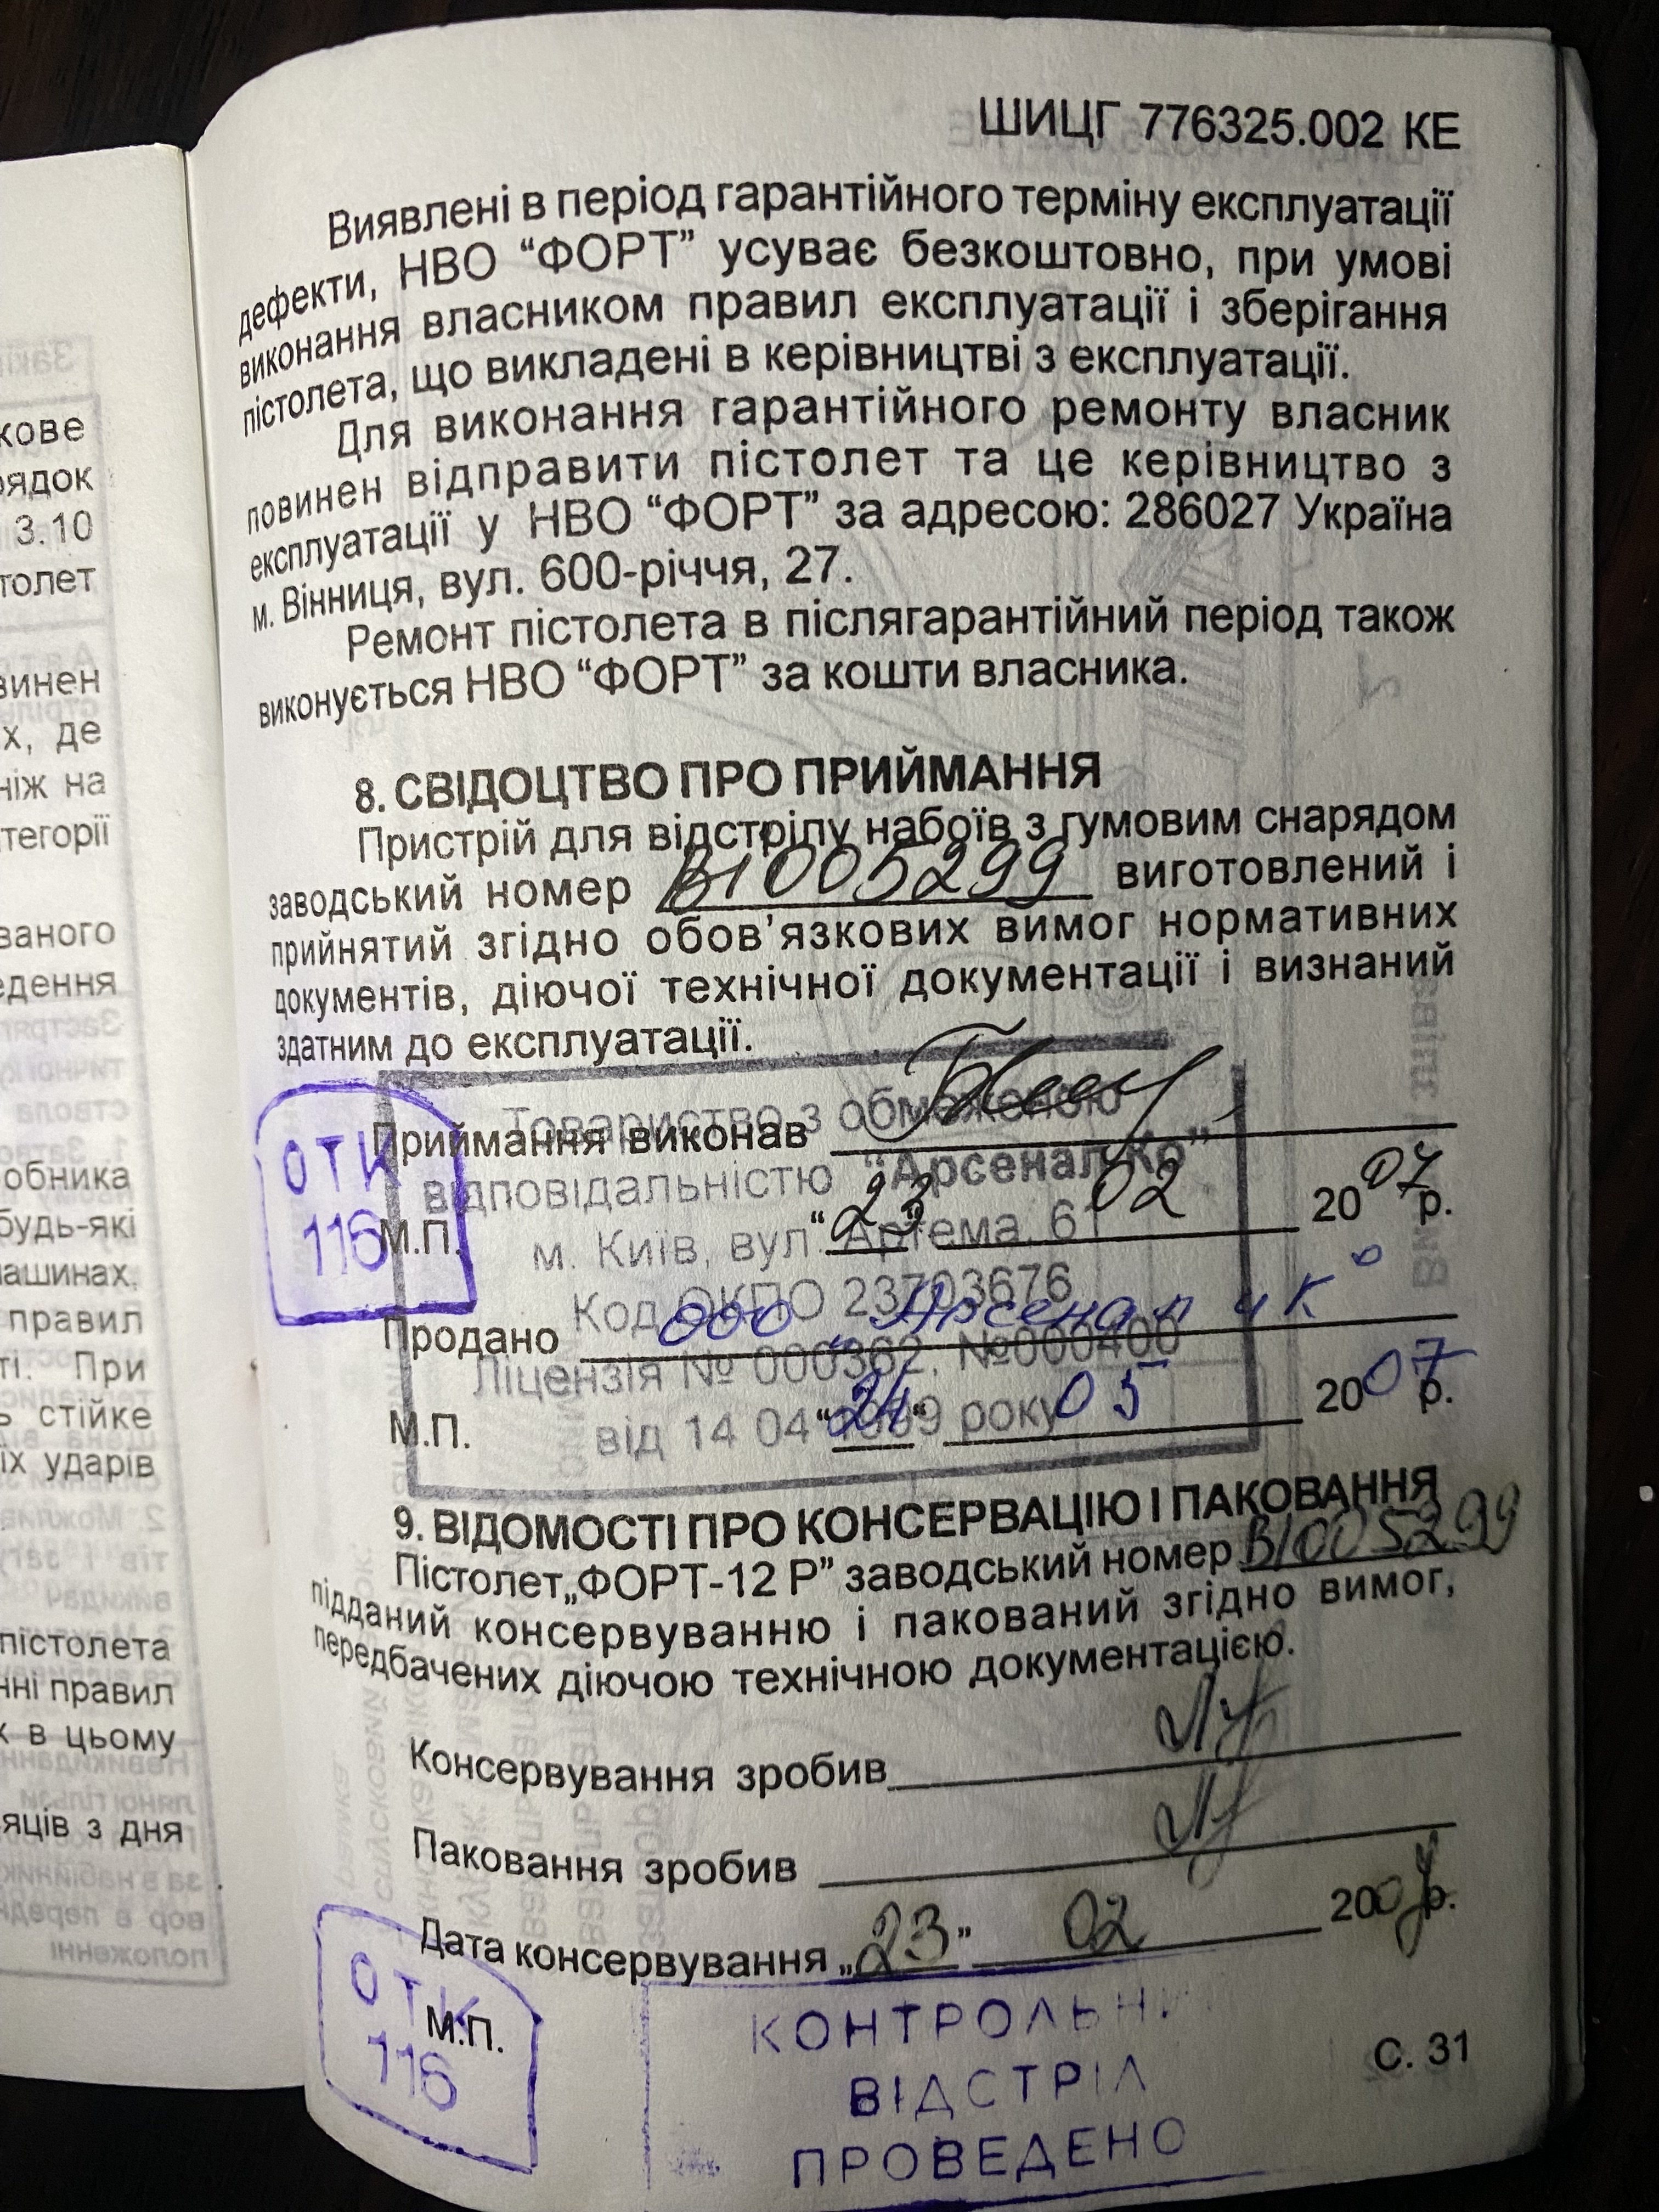 кове
рядок
3.10
толет
винен
х, де
ніж на
тегорії
ваного
едення
обника
будь-які
ашинах.
правил
ті. При
ь стійке
їх ударів
пістолета
нні правил
х в цьому
яців з дня
ШИЦГ 776325.002 КЕ
Виявлені в період гарантійного терміну експлуатації
дефекти, НВО “ФОРТ” усуває безкоштовно, при умові
виконання власником правил експлуатації і зберігання
пістолета, що викладені в керівництві з експлуатації.
Для виконання гарантійного ремонту власник
повинен відправити пістолет та це керівництво з
експлуатації у НВО “ФОРТ” за адресою: 286027 Україна
м. Вінниця, вул. 600-річчя, 27.
Ремонт пістолета в післягарантійний період також
виконується НВО “ФОРТ” за кошти власника.
8. СВІДОЦТВО ПРО ПРИЙМАННЯ
Пристрій для відстрілу набоїв з гумовим снарядом
заводський номер ВІ005299 виготовлений і
прийнятий згідно обов’язкових вимог нормативних
документів, діючої технічної документації і визнаний
здатним до експлуатації.
Товариство з обмеженою
Приймання виконав
відповідальністю “Арсенал Ко”
ОТК
116
М.П. “23” 02 2007р.
м. Київ, вул. Артема, 61
Код ОКПО 23703676
Продано ооо „Арсенал и К°
Ліцензія № 000362, №000400
М.П. “24“ 05 2007р.
від 14 04 1999 року
9. ВІДОМОСТІ ПРО КОНСЕРВАЦІЮ І ПАКОВАННЯ
Пістолет „ФОРТ-12 Р” заводський номер ВІ005299
підданий консервуванню і пакований згідно вимог,
передбачених діючою технічною документацією.
Консервування зробив
Паковання зробив
Дата консервування „23” 02 2007р.
ОТК
116
М.П.
КОНТРОЛЬН.
ВІДСТРІЛ
ПРОВЕДЕНО
С. 31